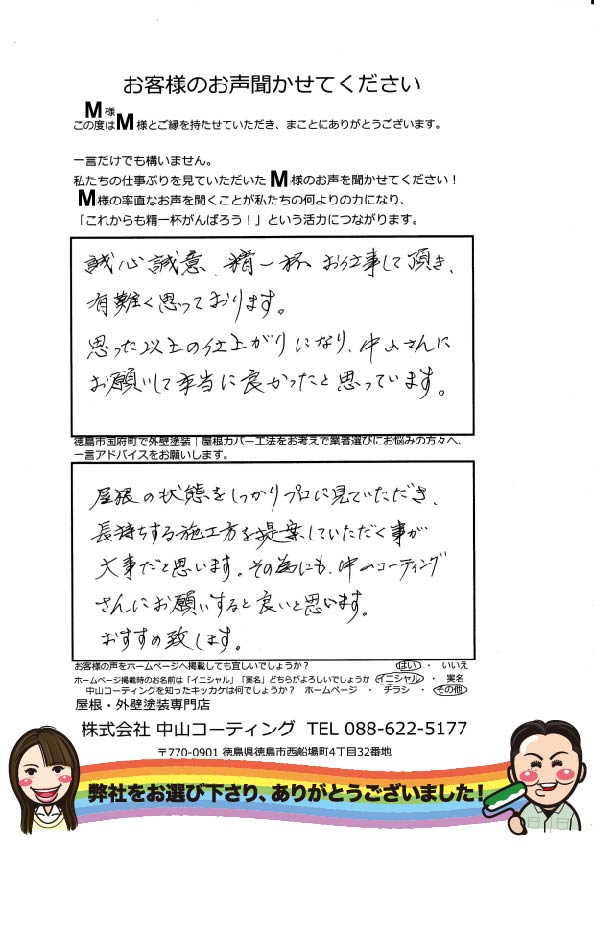 お客様のお声聞かせてください
M様
この度はM様とご縁を持たせていただき、まことにありがとうございます。
一言だけでも構いません。
私たちの仕事ぶりを見ていただいた M様のお声を聞かせてください！
M様の率直なお声を聞くことが私たちの何よりの力になり、
「これからも精一杯がんばろう！」という活力につながります。
誠心誠意、精一杯お仕事して頂き、
有難く思っております。
思った以上の仕上がりになり、中山さんに
お願いして本当に良かったと思っています。
徳島市国府町で外壁塗装｜屋根カバー工法をお考えで業者選びにお悩みの方々へ、
一言アドバイスをお願いします。
屋根の状態をしっかりプロに見ていただき、
長持ちする施工方を提案していただく事が
大事だと思います。その為にも、中山コーティング
さんにお願いすると良いと思います。
おすすめ致します。
お客様の声をホームページへ掲載しても宜しいでしょうか？ はい ・ いいえ
ホームページ掲載時のお名前は「イニシャル」「実名」どちらがよろしいでしょうか イニシャル ・ 実名
中山コーティングを知ったキッカケは何でしょうか？ ホームページ ・ チラシ ・ その他
屋根・外壁塗装専門店
株式会社 中山コーティング TEL 088-622-5177
〒770-0901 徳島県徳島市西船場町4丁目32番地
弊社をお選び下さり、ありがとうございました！